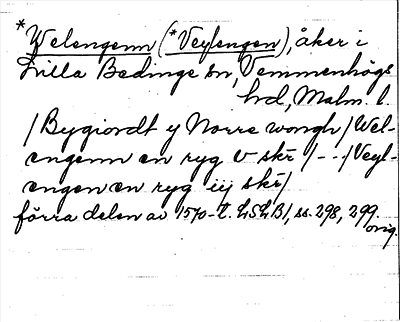 *Welengenn (*Veylengen), åker i
Lilla Bedinge sn, Vemmenhögs
hd, Malm. l.
/Bygiordt y Norre wongh/Wel-
engenn en ryg v skr̄ /---/Veyl-
engen en ryg iij skr̄/
förra delen av 1570-t. LSLB1, ss. 298, 299.
orig.